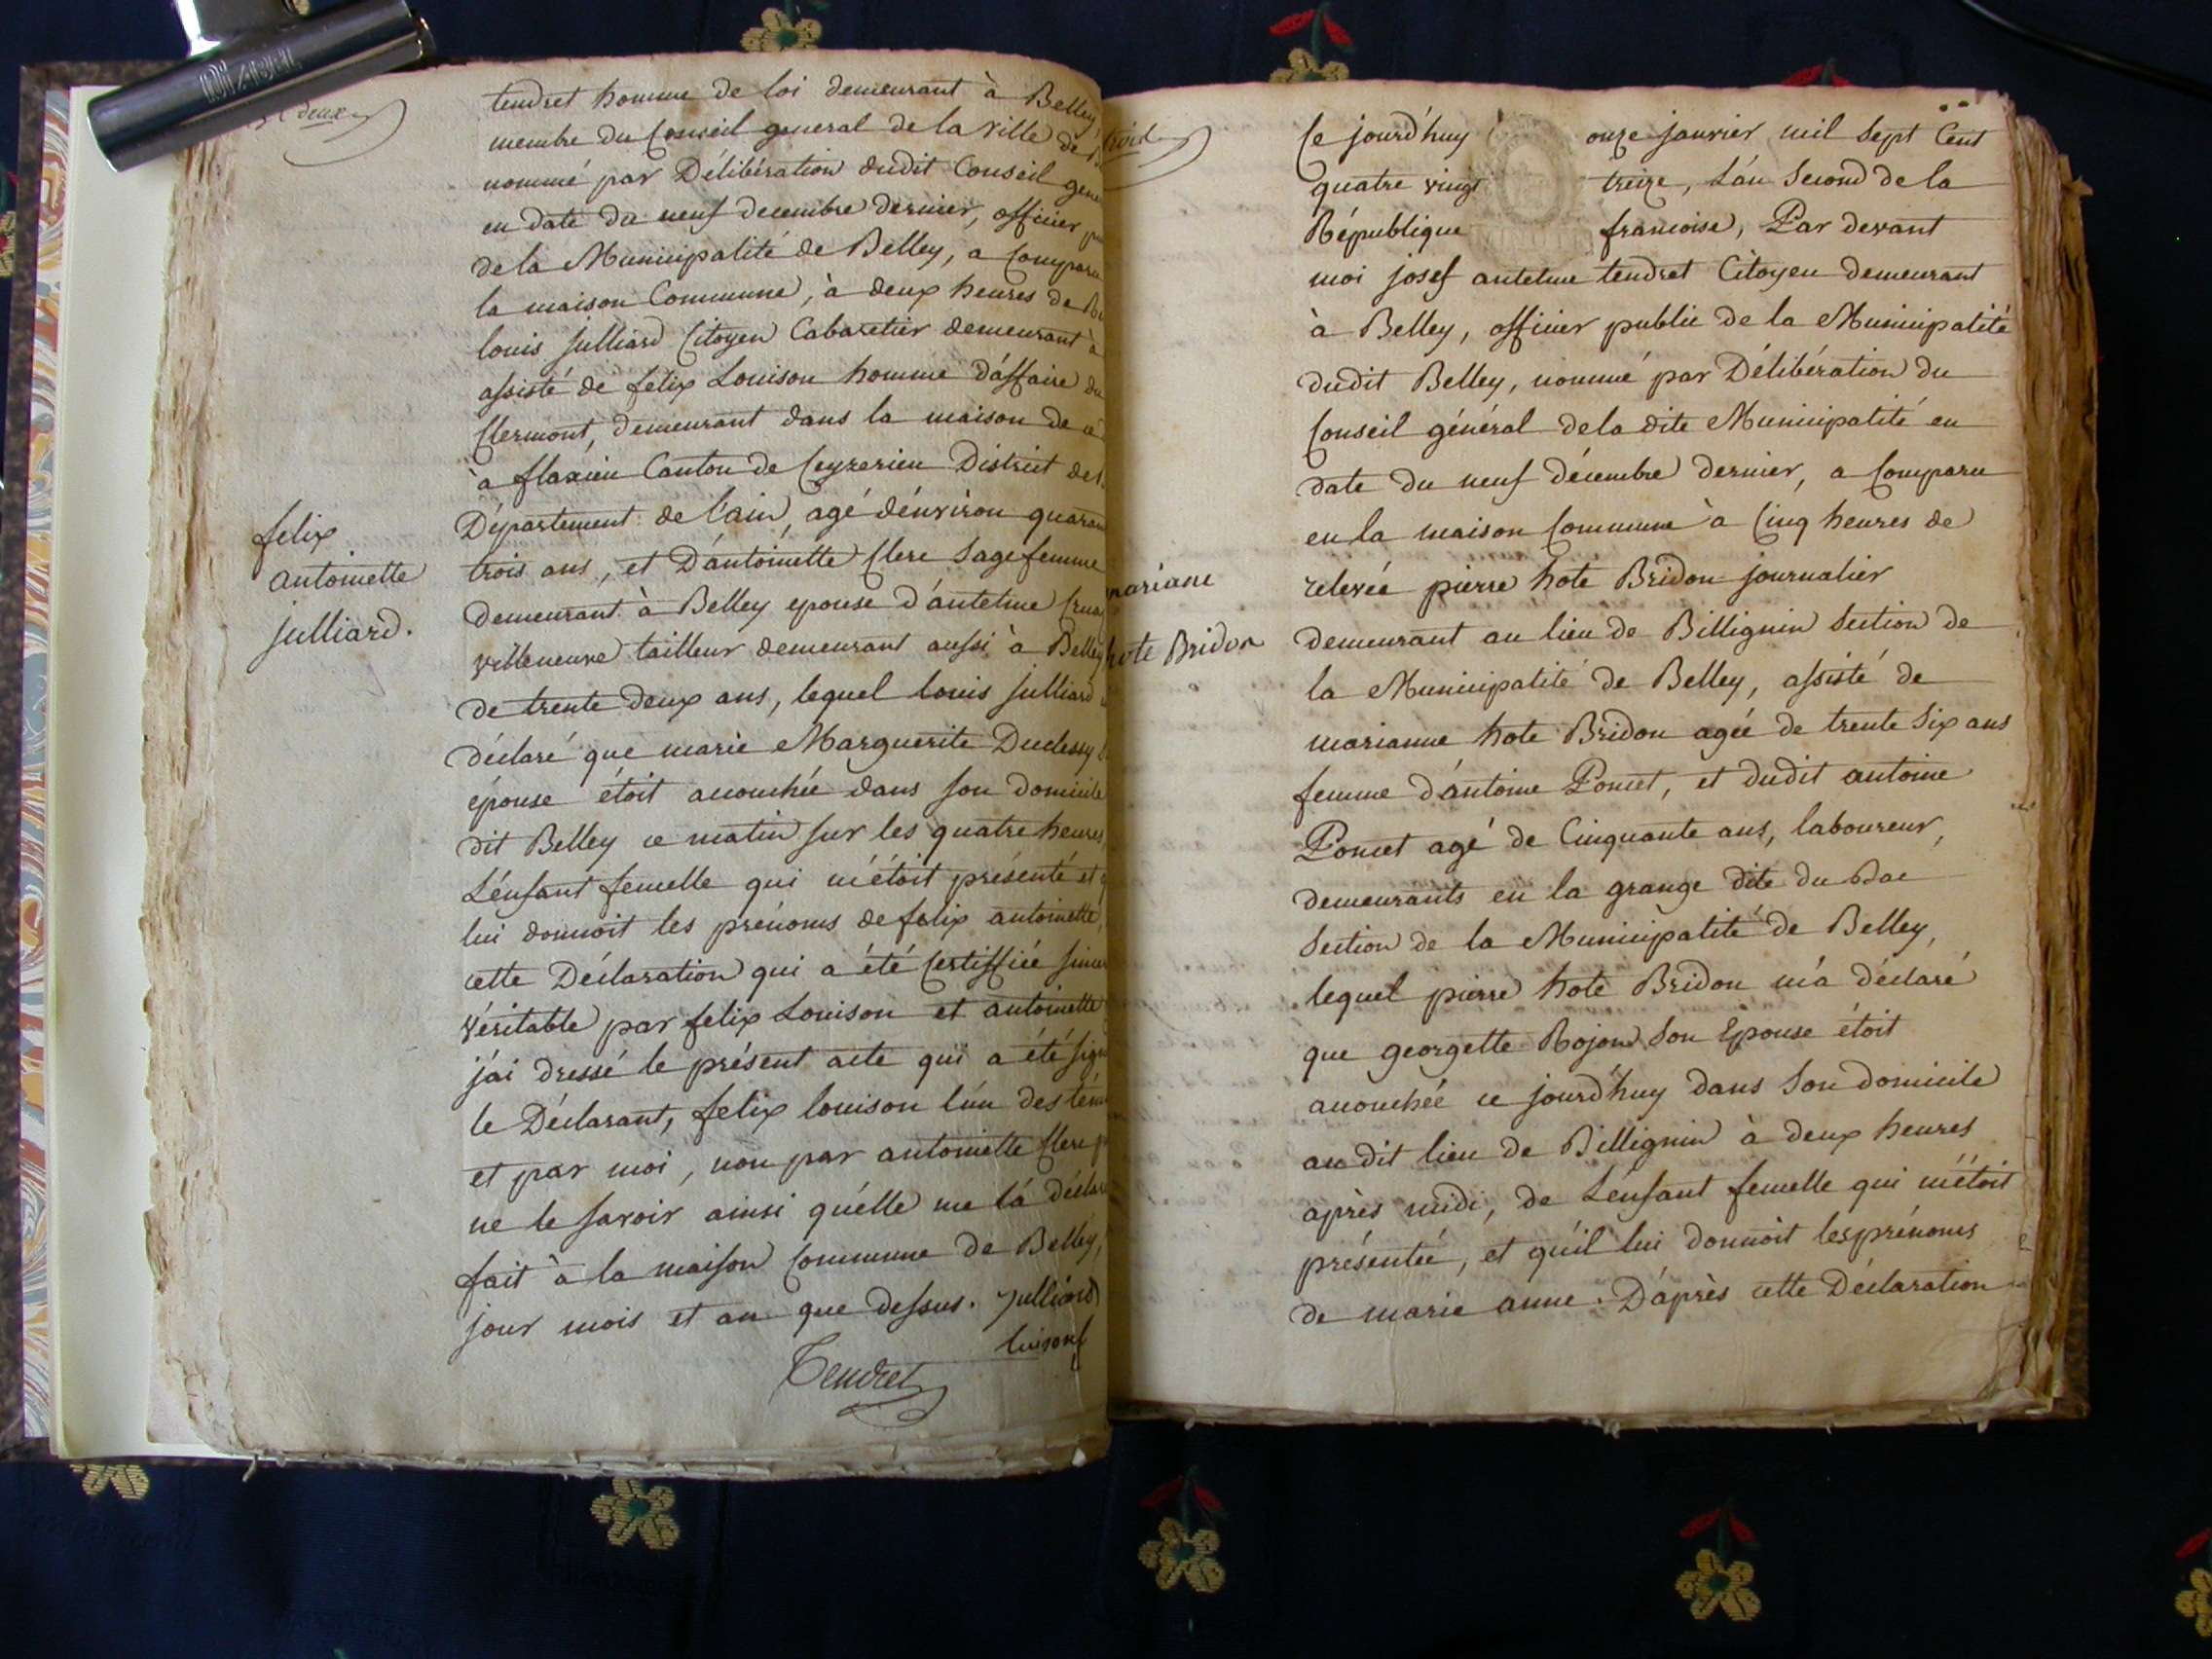 deux
tendret homme de loi demeurant à Belley,
membre du Conseil general de la ville de
nommé par Délibération dudit Conseil gene
en date du neuf decembre dernier, officier
de la Municipalité de Belley, a Comparu
la maison Commune, à deux heures de
louis Julliard Citoyen Cabaretier demeurant à
assisté de felix Louison homme d'affaire du
Clermont, demeurant dans la maison de
à flaxieu Canton de Ceyzerieu District de
felix
antoinette
julliard.
Département de l'ain, agé d'environ quaran
trois ans, et D'antoinette Clerc Sage femme
demeurant à Belley epouse d'antelme
villeneuve tailleur demeurant aussi à Belley
de trente deux ans, lequel louis julliard
déclaré que marie Marguerite Duclessy
épouse étoit accouchée dans son domicile
dit Belley ce matin sur les quatre heures
L'enfant femelle qui m'étoit présenté et
lui donnoit les prénoms de felix antoinette,
cette Déclaration qui a été Certiffiée sincer
véritable par felix Louison et antoinette
j'ai dressé le présent acte qui a été sign
le Déclarant, felix louison l'un des tem
et par moi, non par antoinette Clerc
ne le savoir ainsi qu'elle me l'a décla
fait à la maison Commune de Belley,
jour mois et an que dessus. Julliard
luison
Tendret
Ce jourd'huy onze janvier mil Sept Cent
quatre vingt treize, L'an Second de la
République francoise, Par devant
moi josef antelme tendret Citoyen demeurant
à Belley, officier public de la Municipalité
dudit Belley, nommé par Délibération du
Conseil général de la dite Municipalité en
date du neuf décembre dernier, a Comparu
en la maison Commune à Cinq heures de
mariane
hote Bridon
relevée pierre hote Bridon journalier
demeurant au lieu de Billignin Section de
la Municipalité de Belley, assisté de
marianne hote Bridon agée de trente Six ans
femme d'antoine Poncet, et dudit antoine
Poncet agé de Cinquante ans, laboureur,
demeurants en la grange dite du Bac
Section de la Municipalité de Belley,
lequel pierre hote Bridon m'a déclaré
que georgette Rojon Son Epouse étoit
accouchée ce jourd'huy dans Son domicile
au dit lieu de Billignin à deux heures
après midi, de L'enfant femelle qui m'étoit
présentée, et qu'il lui donnoit les prénoms
de marie anne. D'après cette Déclaration